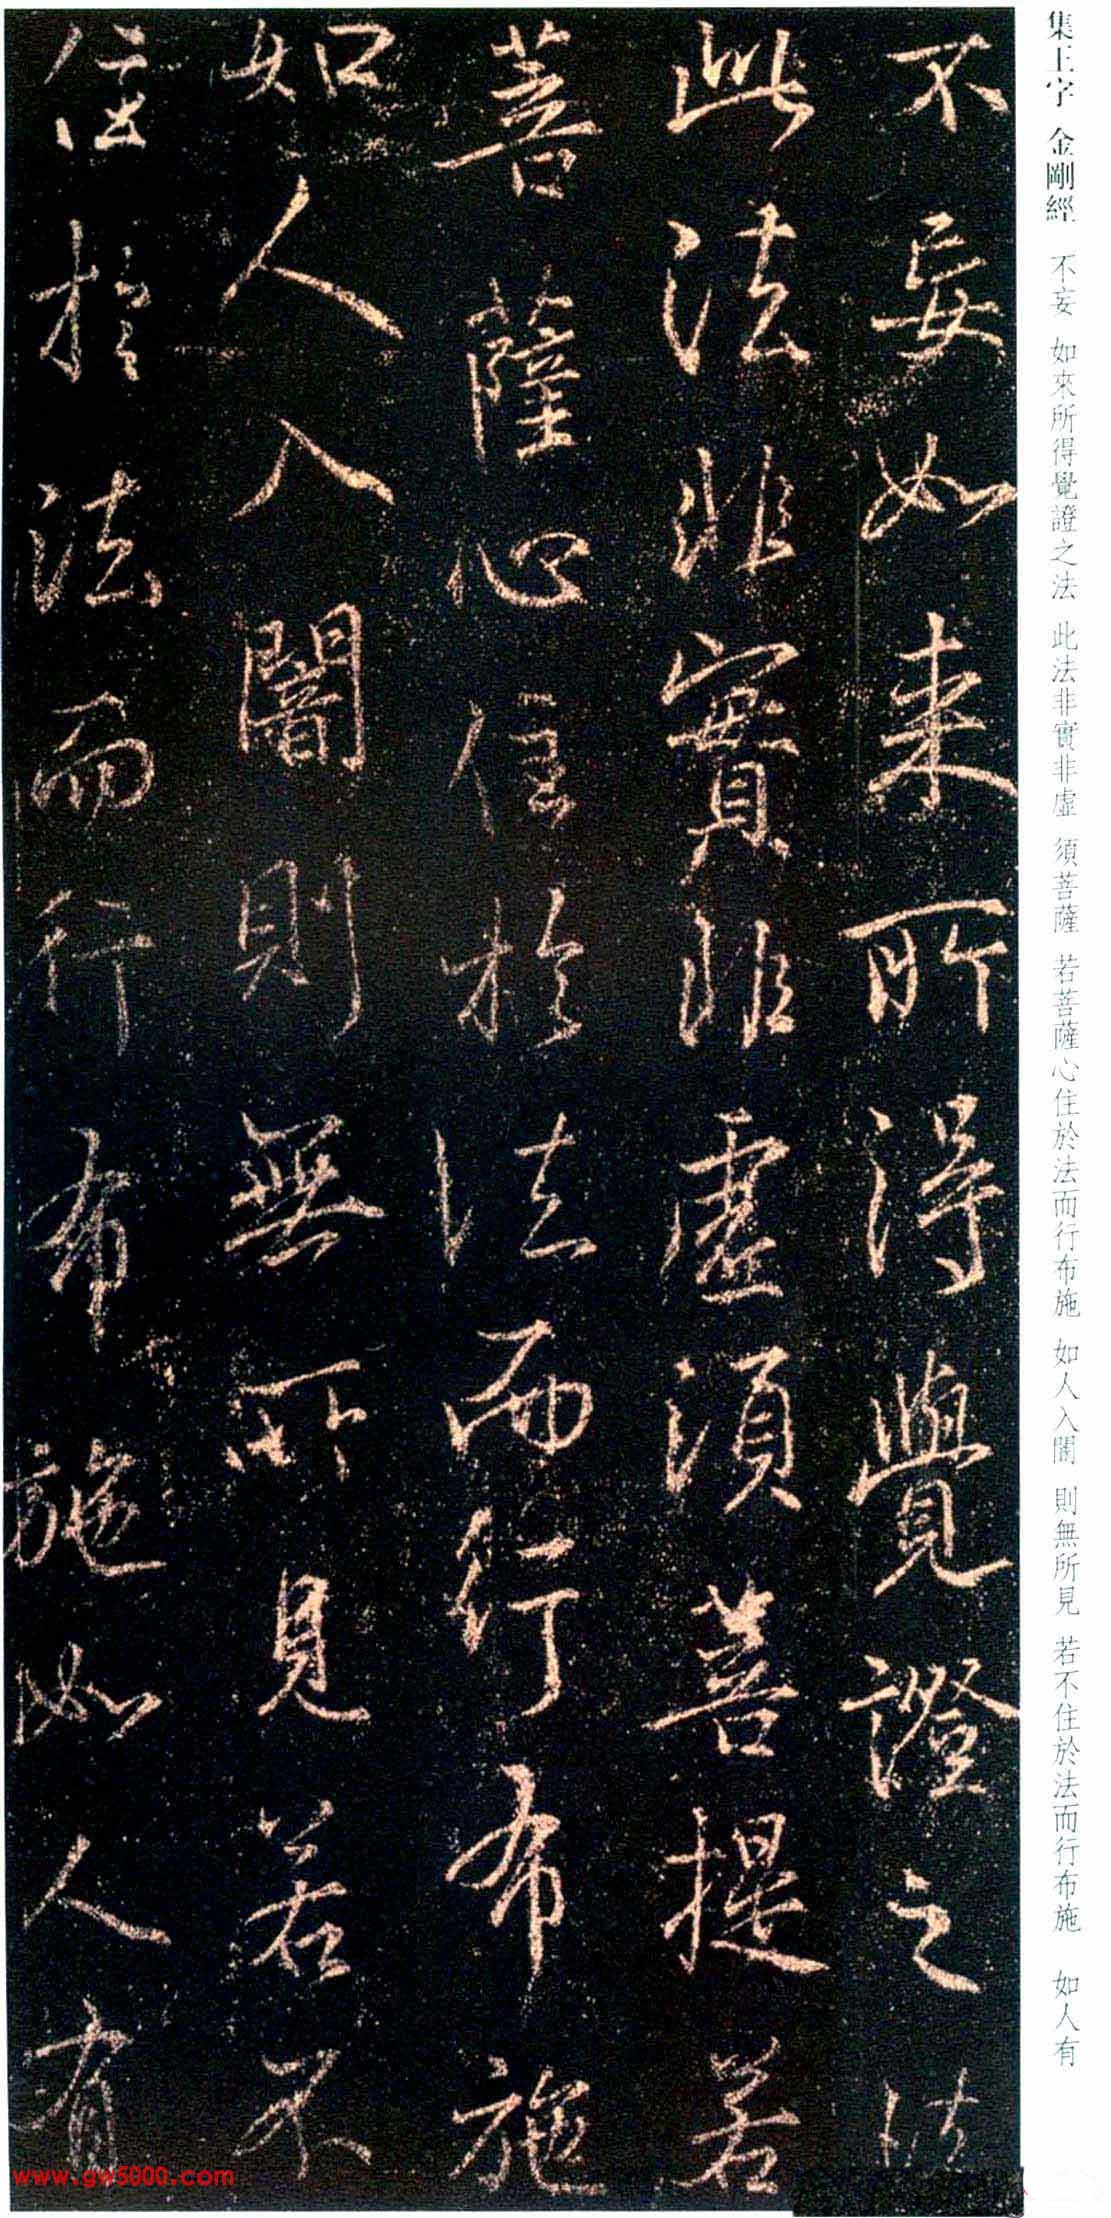 集王字 金剛經 不妄 如來所得覺證之法 此法非實非虛 須菩薩 若菩薩心住於法而行布施 如人入闇 則無所見 若不住於法而行布施 如人有
不妄如來所得覺證之法
此法非實非虛須菩提若
菩薩心住於法而行布施
如人入闇則無所見若不
住於法而行布施如人有
www.gw5000.com